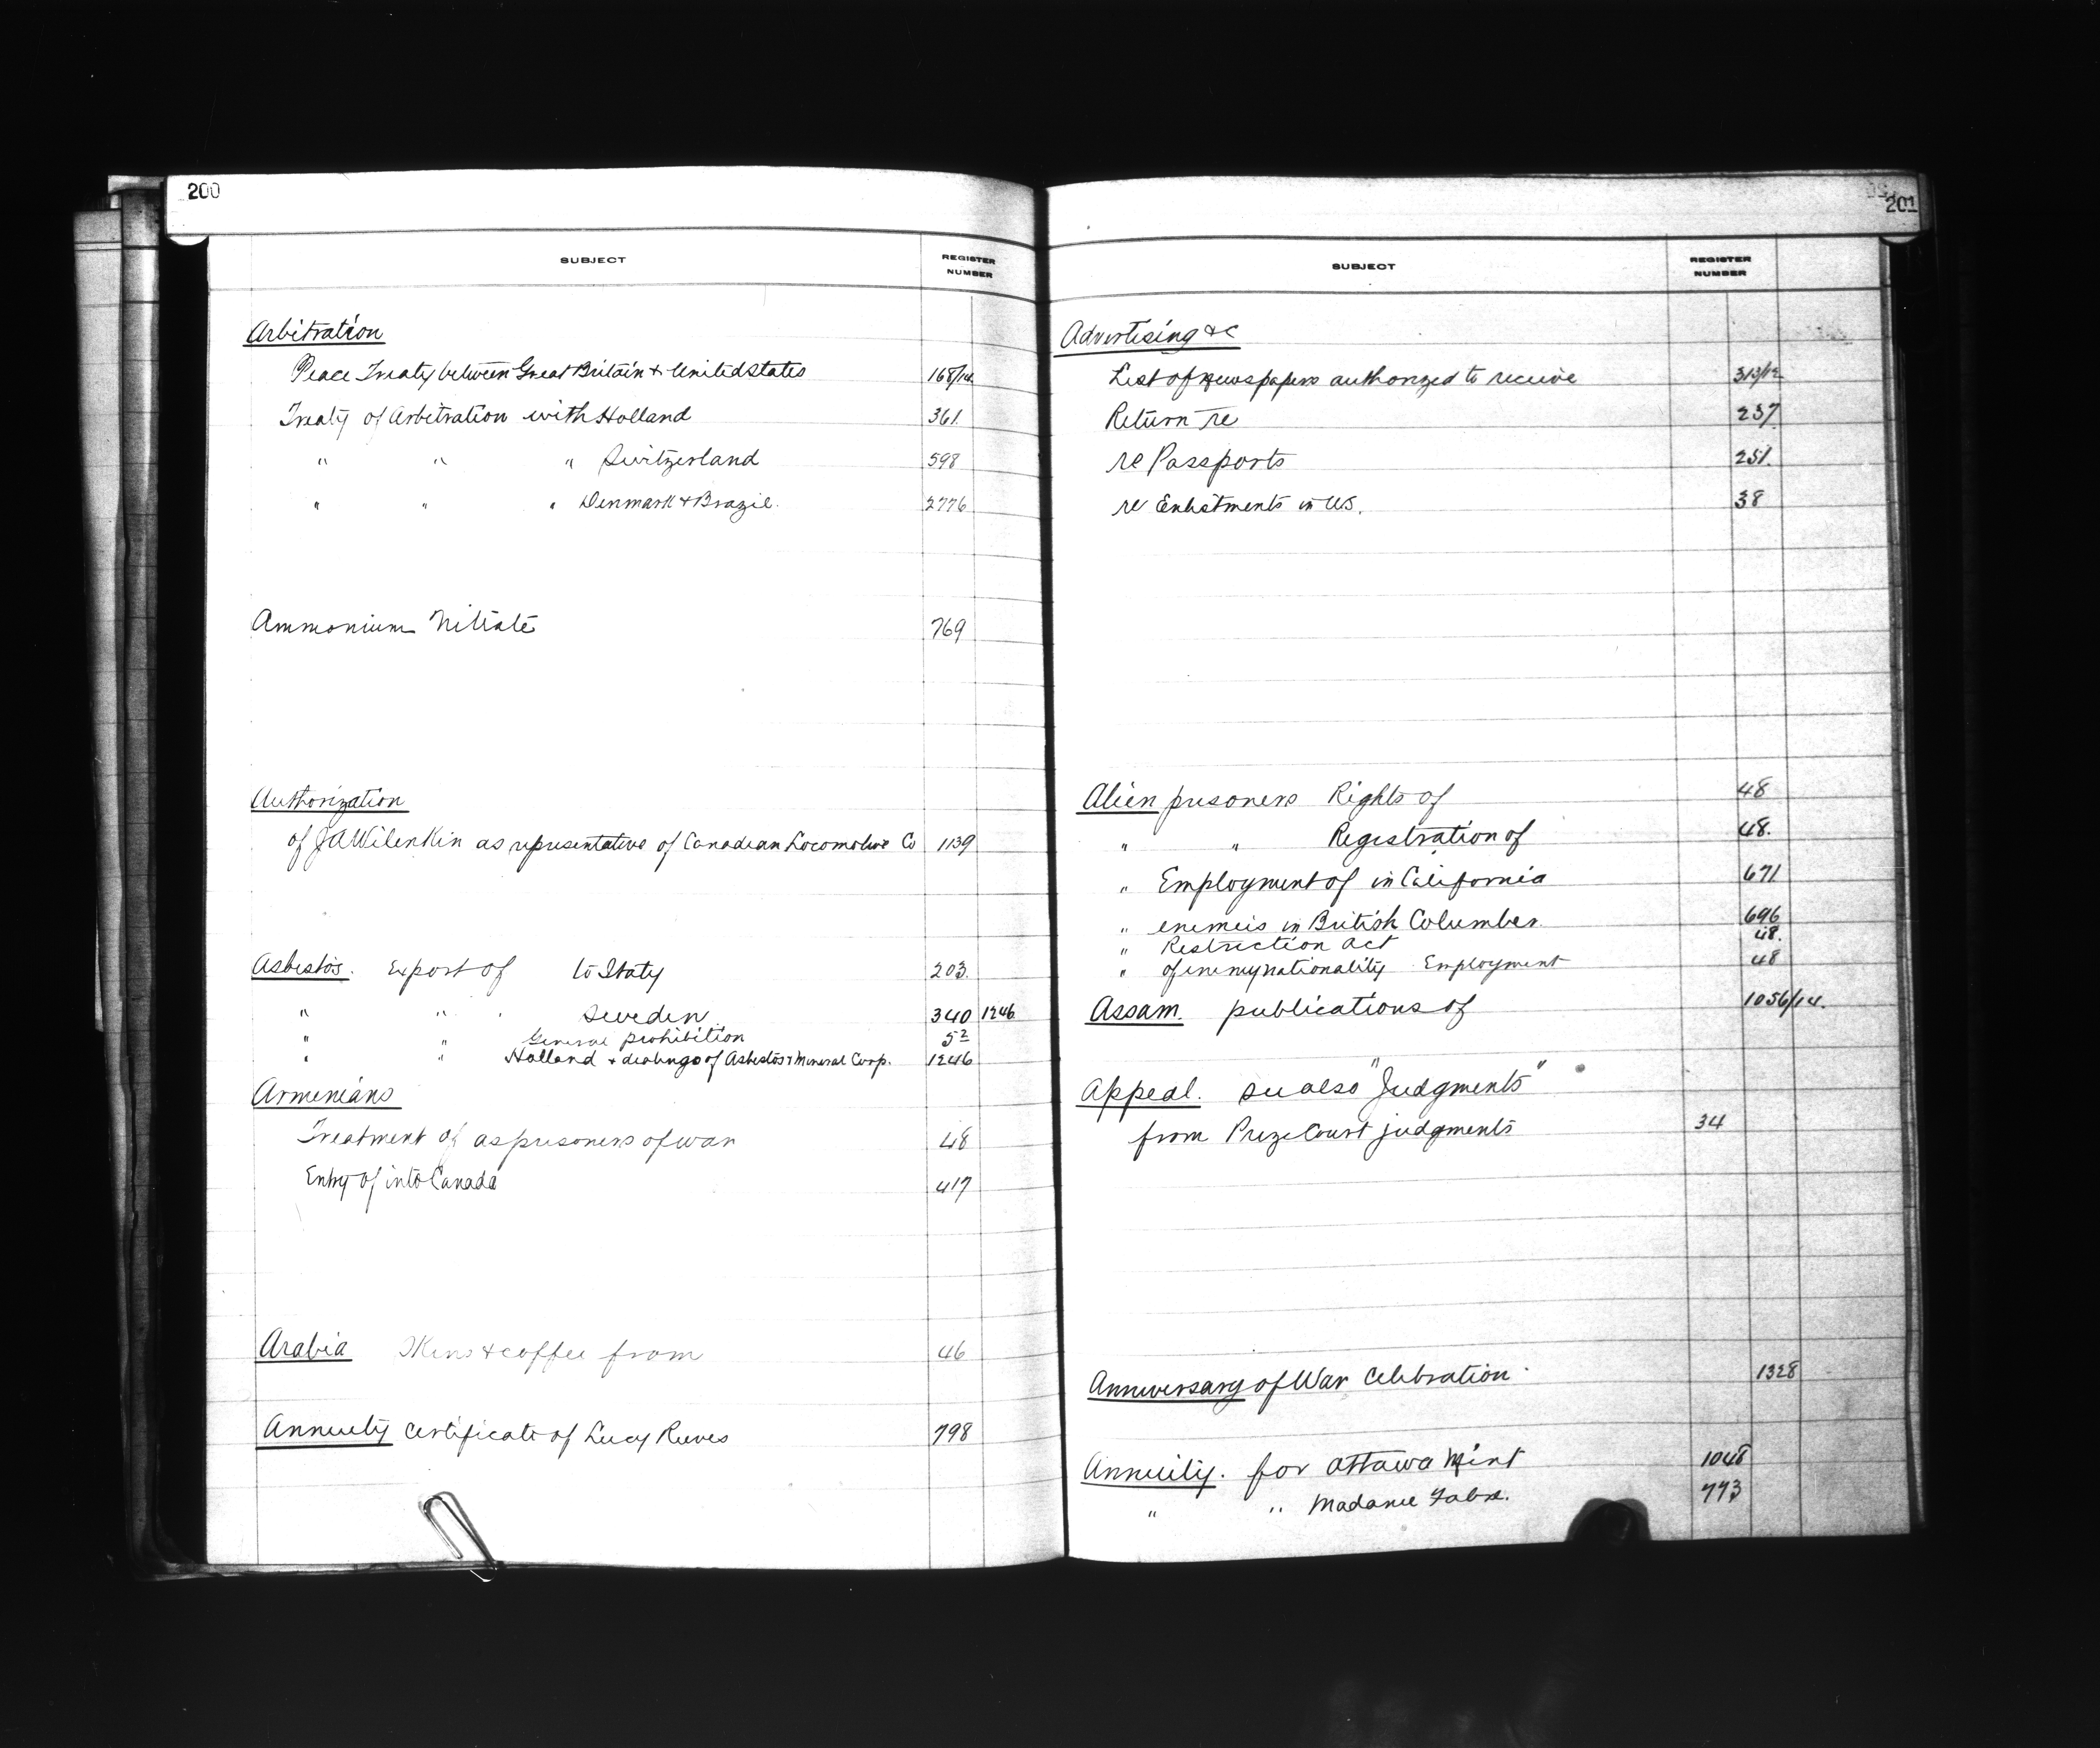 200
SUBJECT REGISTER NUMBER
Arbitration
Peace Treaty between Great Britain & United States 168/14
Treaty of Arbitration with Holland 361
" " " Switzerland 598
" " " Denmark & Brazil. 2776
Ammonium Nitrate 769
Authorization
of J A Wilenkin as representative of Canadian Locomotive Co 1139
Asbestos. Export of to Italy 203.
" " " Sweden 340 1246
" " General prohibition 52
" " Holland & dealings of Asbestos & Mineral Corp. 1246
Armenians
Treatment of as prisoners of war 48
Entry of into Canada 417
Arabia Skins & coffee from 46
Annuity Certificate of Lucy Reeves 798
201
SUBJECT REGISTER NUMBER
Advertising &c
List of newspapers authorized to receive 313/12
Return re 237
re Passports 251.
re Enlistments in US. 38
Alien prisoners Rights of 48
" " Registration of 48.
" Employment of in California 671
" enemeis in British Columber. 696
" Restriction act 48.
" of enemy nationality Employment 48
Assam. publications of 1056/14.
Appeal. see also "Judgments"
from Prize Court judgments 34
Anniversary of War Celebration 1328
Annuity. for Ottawa Mint 1048
" " Madame 773